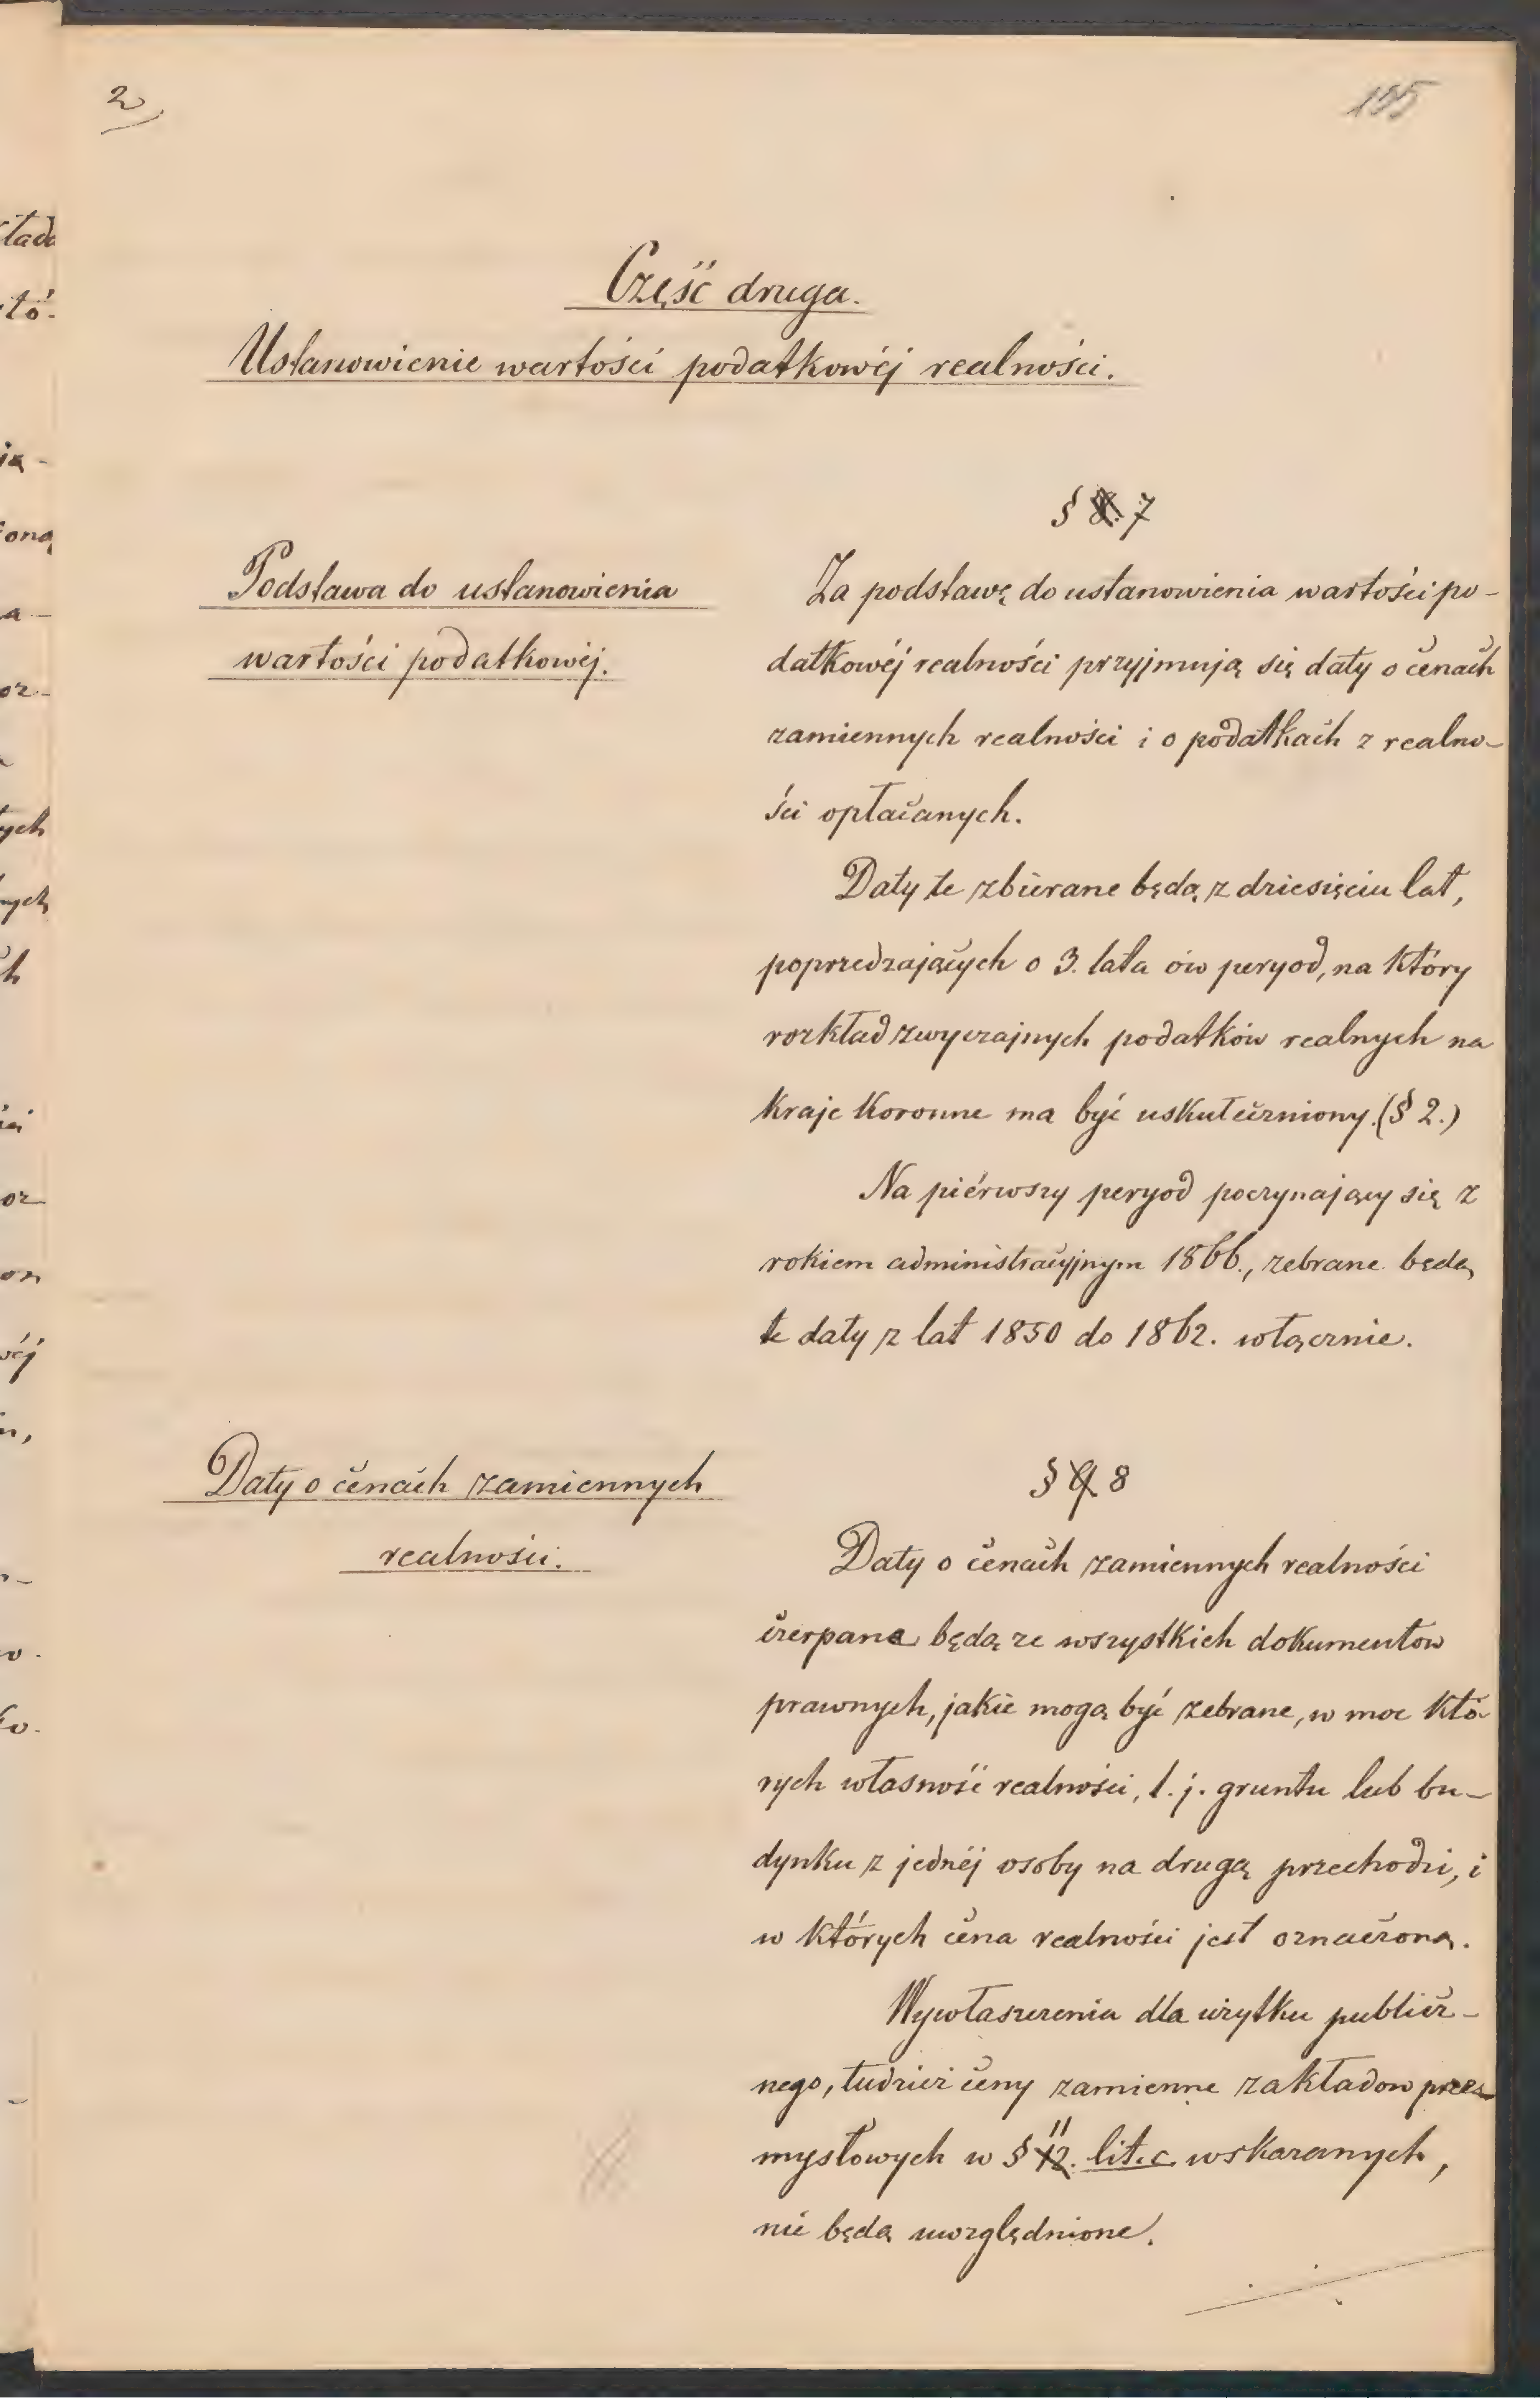 2
155
Część druga.
Ustanowienie wartości podatkowéj realności.
§ 8. 7
Podstawa do ustanowienia
wartości podatkowéj.
Za podstawę do ustanowienia wartości po-
datkowéj realności przyjmują się daty o cenach
zamiennych realności i o podatkach z realno-
ści opłacanych.
Daty te zbierane będą z dziesięciu lat,
poprzedzających o 3. lata ów peryod, na który
rozkład zwyczajnych podatków realnych na
kraje koronne ma być uskuteczniony. (§ 2.)
Na piérwszy peryod poczynający się z
rokiem administracyjnym 1866., zebrane będą
te daty z lat 1850 do 1862. włącznie.
Daty o cenach zamiennych
realności.
§ 9 8
Daty o cenach zamiennych realności
czerpane będą ze wszystkich dokumentow
prawnych, jakie mogą być zebrane, w moc któ-
rych własność realności, t. j. gruntu lub bu-
dynku z jednéj osoby na drugą przechodzi, i
w których cena realności jest oznaczoną.
Wywłaszczenia dla użytku publicz-
nego, tudzież ceny zamienne zakładow prze-
mysłowych w § 12. 11 lit. c. wskazanych,
nie będą uwzględnione.